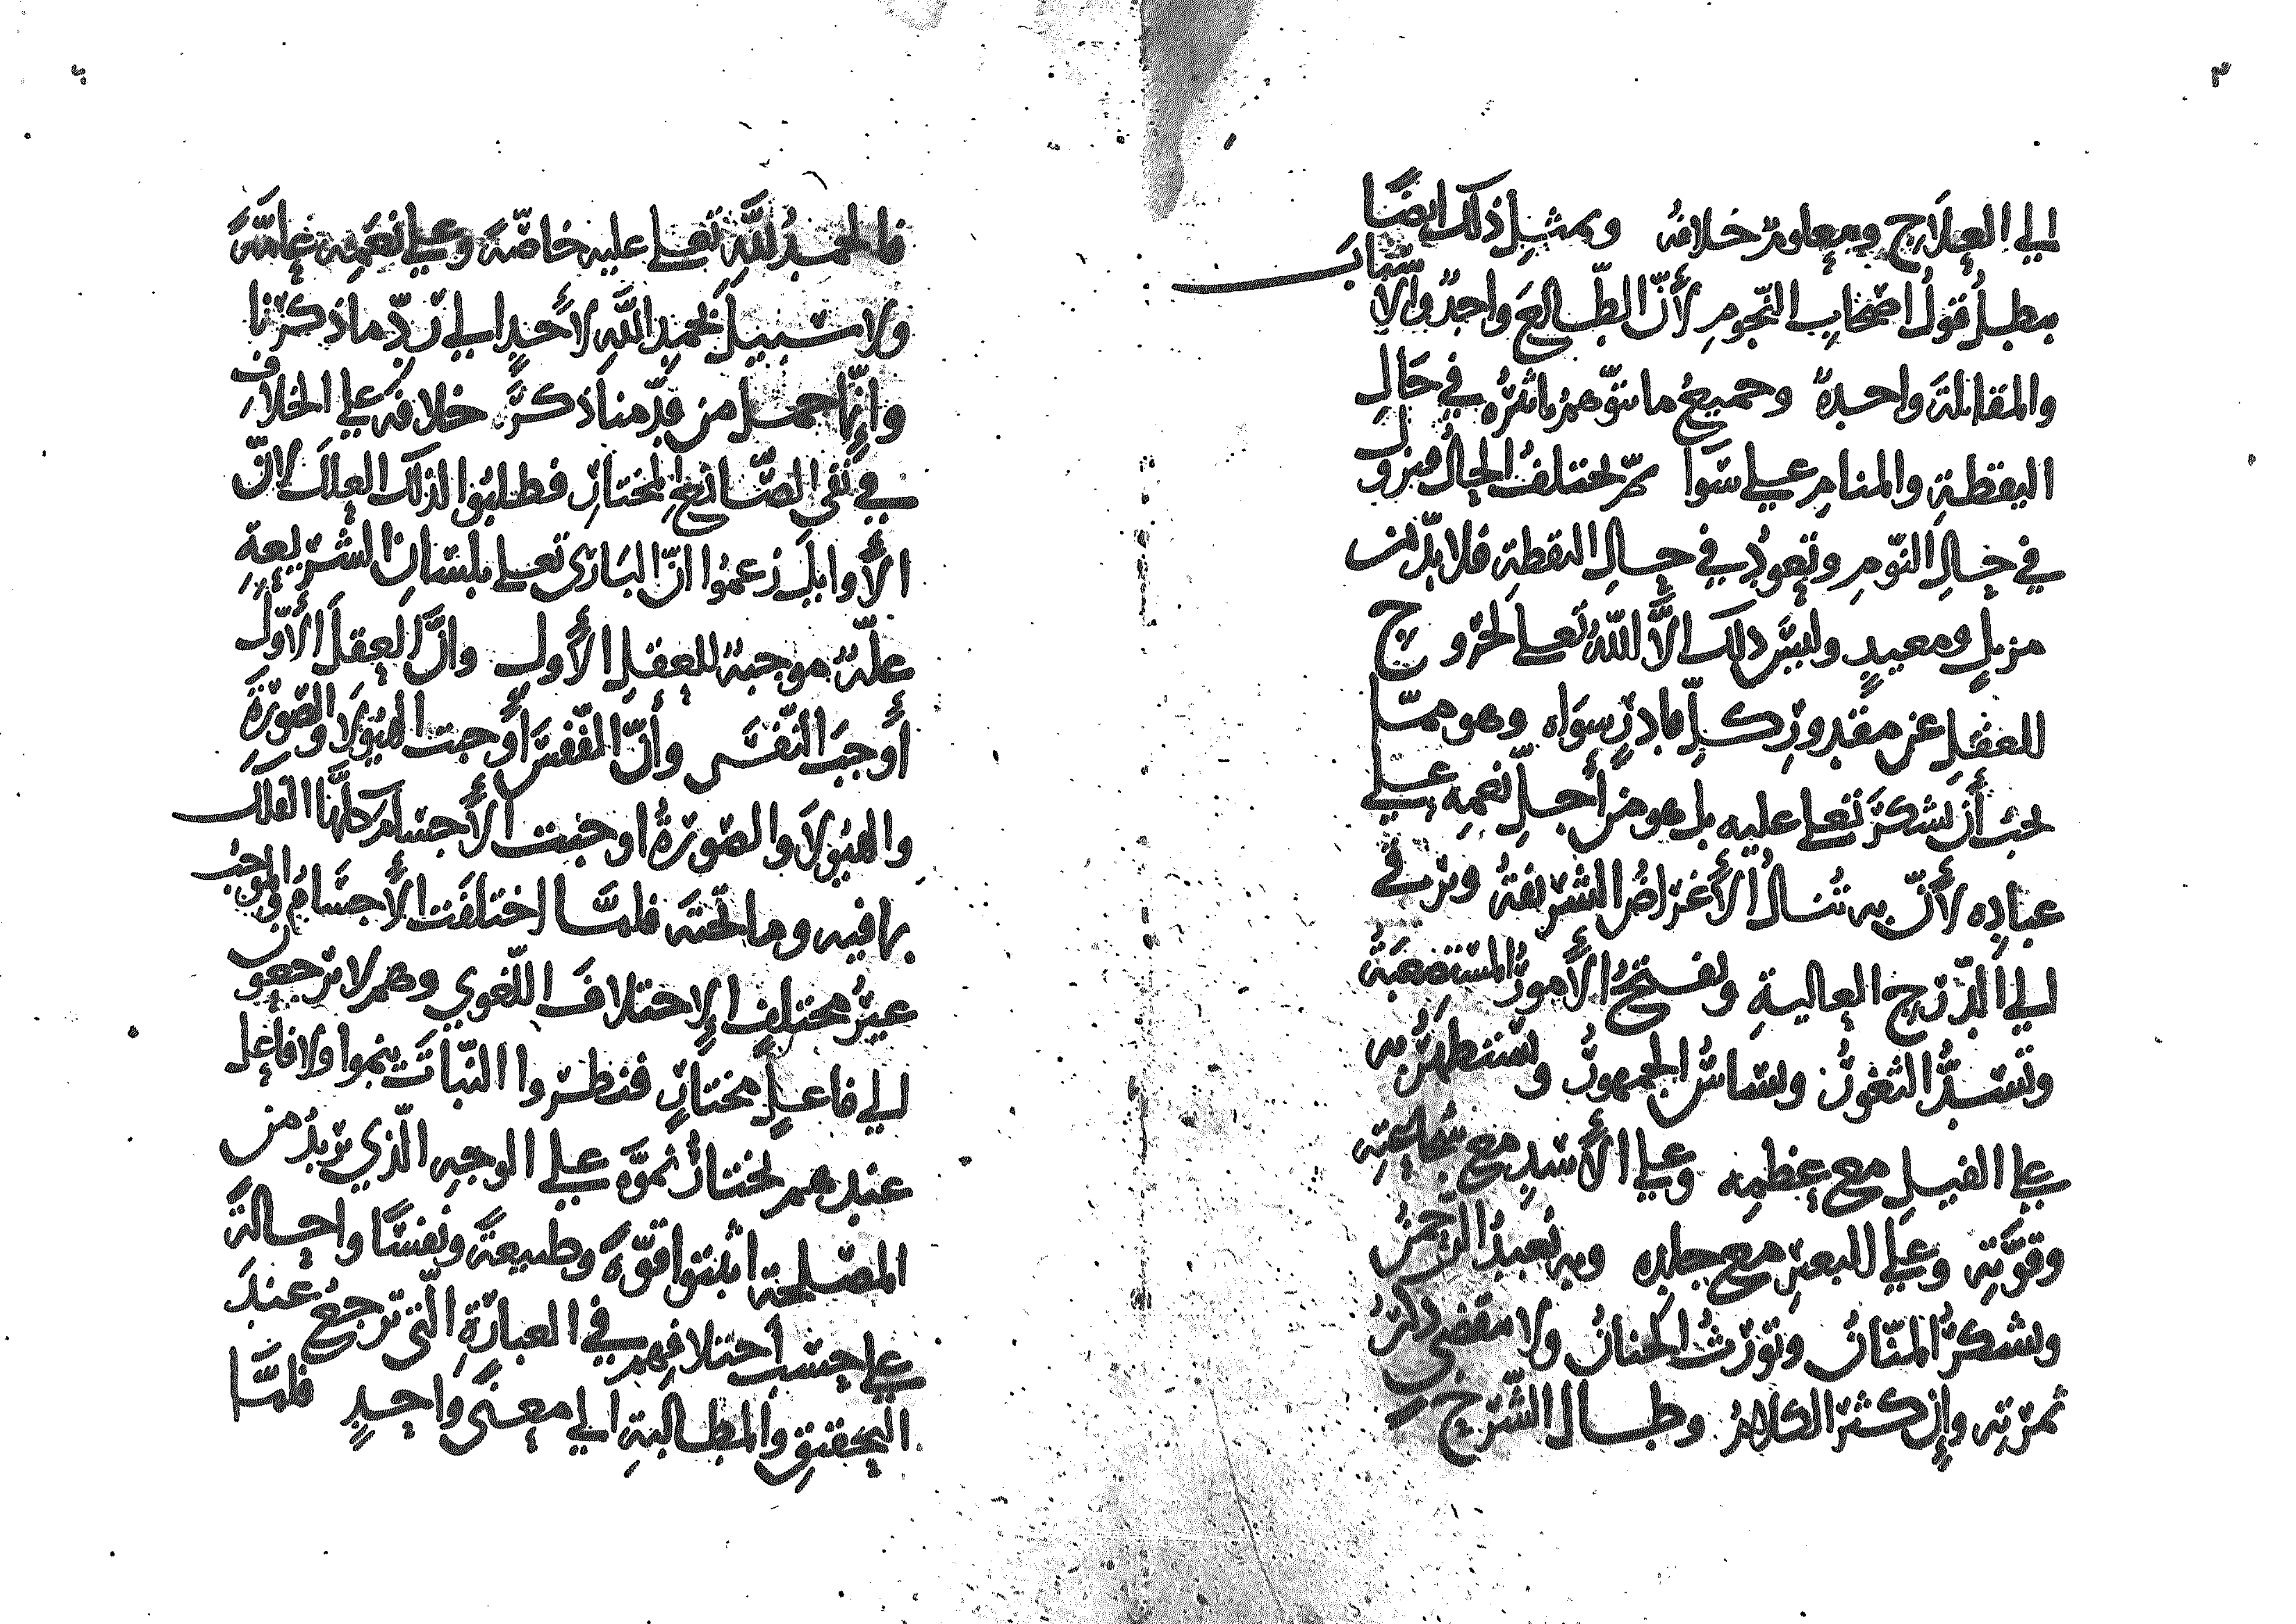 ٣
الي العلاج ومعلوم خلافه وبمثل ذلك ايضًا
يبطل قول اصحاب النجوم لأنّ الطّالع واحدٌ والاسباب
والمقابلة واحدةٌ وجميع ما نتوهم تاثيره في حال
اليقظة والمنام علي سَوا ثمّ يختلف الحال فيزول
في حال النّوم ويعود في حال اليقظة فلا بدّ من
مزيلٍ ومعيدٍ وليس ذلك الاَّ اللّه تعالي لخروج
العقل عن مقدور كلّ قادرٍ سِوَاه وهو ممّا
يجب أن يُشكرَ تعالي عليه بل هو من أجلّ نعمه علي
عباده لأنّ به تُنال الأغراضُ الشّريفةُ ويرقي
الي الدّرج العالية وتفتح الأمورُ المستصعبَةُ
وتُسَدُّ الثّغورُ ويُساسُ الجمهورُ ويُستظهرُ به
علي الفيل مع عِظمِه وعلي الأسَدِ مع شجاعته
وقوّته وعلي البعير مع جلده وبه يُعبدُ الرّحمنُ
ويُشكرُ المنّانُ وتورثُ الجنانُ ولا ينقضي ذكرُ
ثمرته وإن كثر الكلامُ وطال الشّرحُ
فالحمدُ للّهِ تعالي عليه خاصّةً وعلي نعَمِه عامّةً
ولا سَبيلَ بحمدِ اللّهِ لأحدٍ الي ردّ ما ذكرنا
وانّما حمل من قدّمنا ذكرَ خلافه علي الخلاف
في نفي الصّانع المختارِ فطلبوا لذلك العِللَ لانّ
الأوايلَ زعموا انّ البَاري تعالي بلسَان الشّريعةِ
علّةٌ موجبةٌ للعقلِ الأول وانَّ العقلَ الأوّلَ
أوجبَ النّفسَ وأنّ النّفسَ أوجبت الهيولا والصّورةَ
والهيولا والصّورةُ اوجبت الأجسَام كلّها الفلك
بما فيه وما تحته فلمّا اختلفت الأجسَامُ والموجبُ
غيرُ مختلفٍ الإختلافَ اللّغوي وهم لا يرجعون
الي فاعلٍ مختارٍ فنظروا النّباتَ ينموا ولا فاعل
عندهم يختارُ نموَّه علي الوجه الّذي يزيدُ من
المصلحة اثبتوا قوّةً وطبيعةً ونفسًا واحالةً
علي حسَب اختلافهم في العبارَةِ الّتي ترجعُ عندَ
التّحقيقِ والمطالبةِ الي معنًى واحدٍ فلمّا